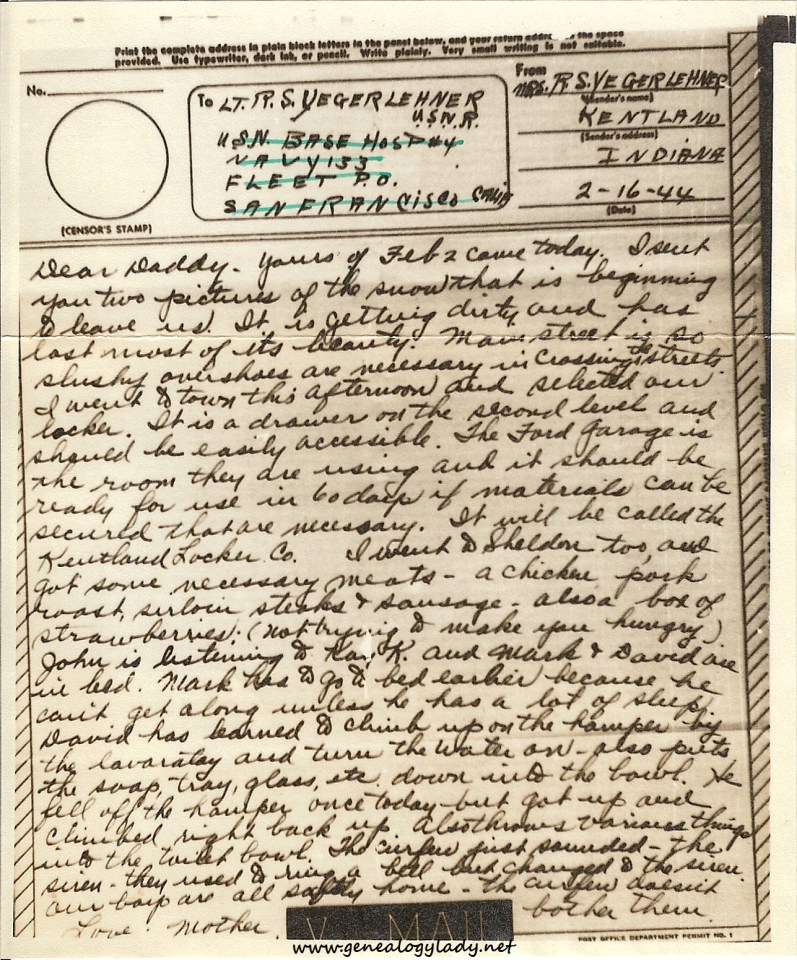 Print the complete address in plain block letters in the panel below, and your return address in the space
provided. Use typewriter, dark ink, or pencil. Write plainly. Very small writing is not suitable.
No.
(CENSOR'S STAMP)
To LT. R. S. YEGERLEHNER
U.S.N.R.
U.S.N. BASE HOSP #4
NAVY 133
FLEET P.O.
SAN FRANCISCO CALIF
From
MRS. R. S. YEGERLEHNER
(Sender's name)
KENTLAND
(Sender's address)
INDIANA
2-16-44
(Date)
Dear Daddy - Yours of Feb 2 came today. I sent
you two pictures of the snow that is beginning
to leave us. It is getting dirty and has
lost most of its beauty. Main street is so
slushy overshoes are necessary in crossing the streets.
I went to town this afternoon and selected our
locker. It is a drawer on the second level and
should be easily accessible. The Ford Garage is
the room they are using and it should be
ready for use in 60 days if materials can be
secured that are necessary. It will be called the
Kentland Locker Co. I went to Sheldon too, and
got some necessary meats - a chicken, pork
roast, sirloin steaks & sausage - also a box of
strawberries. (not trying to make you hungry)
John is listening to Kay K. and Mark & David are
in bed. Mark has to go to bed earlier because he
can't get along unless he has a lot of sleep.
David has learned to climb up on the hamper by
the lavaratay and turn the water on - also puts
the soap, tray, glass, etc. down into the bowl. He
fell off the hamper once today - but got up and
climbed right back up. Also throws various things
into the toilet bowl. The curfew just sounded - the
siren - they used to ring a bell but changed to the siren.
our boys are all safely home - the curfew doesn't
bother them.
Love Mother.
V - MAIL
POST OFFICE DEPARTMENT PERMIT NO. 1
www.genealogylady.net